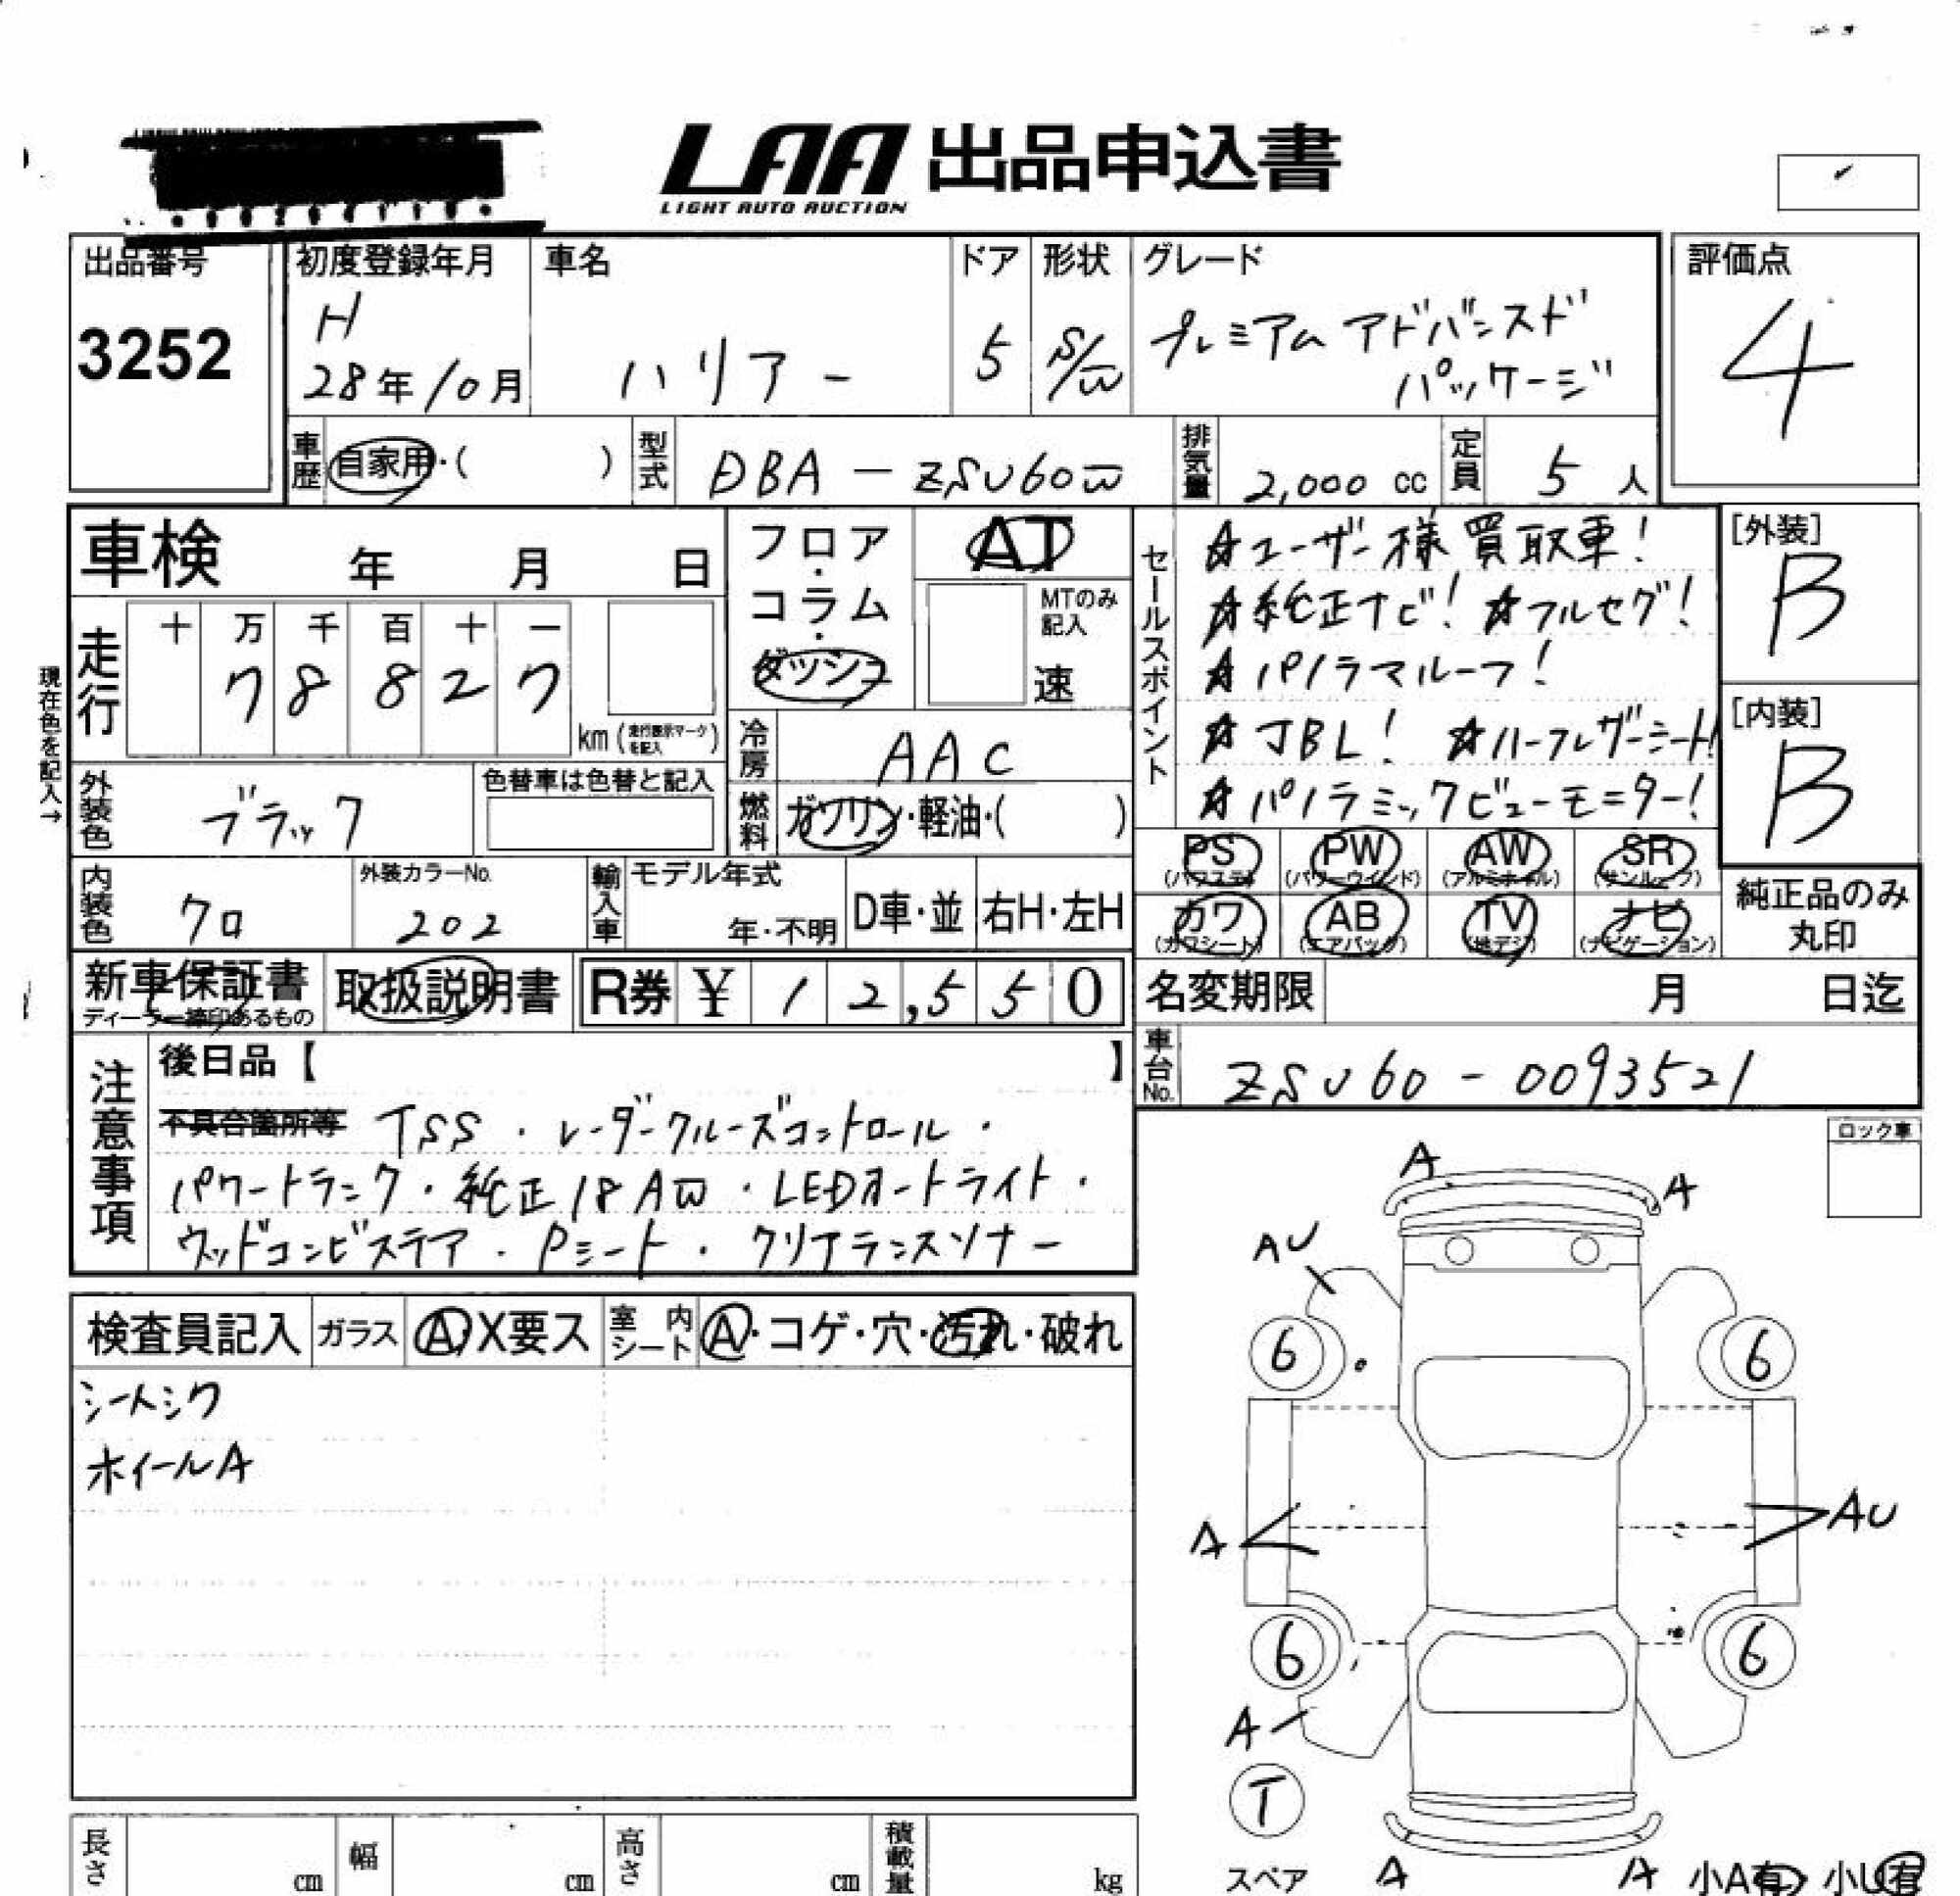 LAA 出品申込書
LIGHT AUTO AUCTION
出品番号
3252
初度登録年月
H
28年10月
車名
ハリアー
ドア
5
形状
S/W
グレード
プレミアム アドバンスド
パッケージ
評価点
4
車歴
自家用・( )
型式
DBA - ZSU60W
排気量
2,000 cc
定員
5 人
車検 年 月 日
現在色を記入→
走行
十 万 千 百 十 一
7 8 8 2 7
km (走行表示マークを記入)
フロア・コラム・ダッシュ
AT
MTのみ
記入
速
冷房
AAC
燃料
ガソリン・軽油・( )
外装色
ブラック
色替車は色替と記入
内装色
クロ
外装カラーNo.
202
輸入車
モデル年式
年・不明
D車・並
右H・左H
セールスポイント
☆ユーザー様買取車!
☆純正ナビ! ☆フルセグ!
☆パノラマルーフ!
☆JBL! ☆ハーフレザーシート!
☆パノラミックビューモニター!
[外装]
B
[内装]
B
PS PW AW SR
(パワステ) (パワーウインド) (アルミホイル) (サンルーフ)
カワ AB TV ナビ
(カワシート) (エアバック) (地デジ) (ナビゲーション)
純正品のみ
丸印
新車保証書
ディーラー捺印あるもの
取扱説明書
R券 ¥ 12,550
名変期限 月 日迄
車台No.
ZSU60-0093521
注意事項
後日品【 】
不具合箇所等 TSS・レーダークルーズコントロール・
パワートランク・純正18AW・LEDオートライト・
ウッドコンビステア・Pシート・クリアランスソナー
ロック車
検査員記入
ガラス
A・X要ス
室内シート
A・コゲ・穴・汚れ・破れ
シートシワ
ホイールA
A
A
AU
6
6
A
AU
6
6
A
T
スペア
A
A
小A有 小U有
長さ cm
幅 cm
高さ cm
積載量 kg